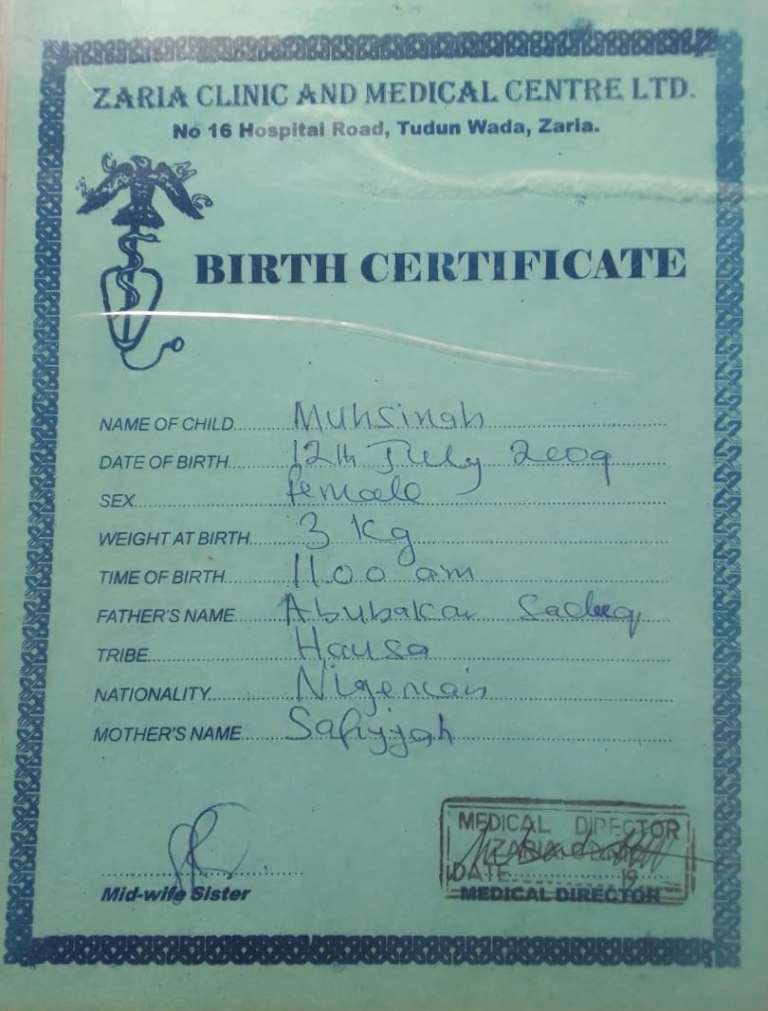 ZARIA CLINIC AND MEDICAL CENTRE LTD.
No 16 Hospital Road, Tudun Wada, Zaria.
BIRTH CERTIFICATE
NAME OF CHILD Muhsinah
DATE OF BIRTH 12th July 2009
SEX female
WEIGHT AT BIRTH 3 Kg
TIME OF BIRTH 11.00 am
FATHER'S NAME Abubakar Sadeeq
TRIBE Hausa
NATIONALITY Nigerian
MOTHER'S NAME Safiyyah
MEDICAL DIRECTOR
ZARIA
DATE 19
Mid-wife Sister
MEDICAL DIRECTOR